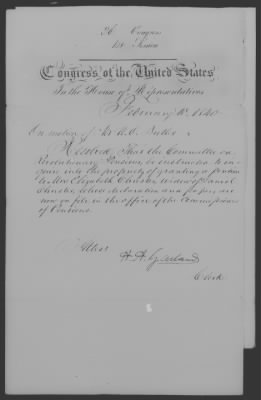 26 Congress
1st Session
Congress of the United States
In the House of Representatives
February 10, 1840
On motion of Mr
Resolved, That the Committee on
Revolutionary Pensions be instructed to in-
quire into the propriety of granting a pension
to Mrs Elizabeth widow of Daniel
whose declaration and papers are
now on file in the office of the Commissioner
of Pensions.
Attest
H. A. Garland
Clerk